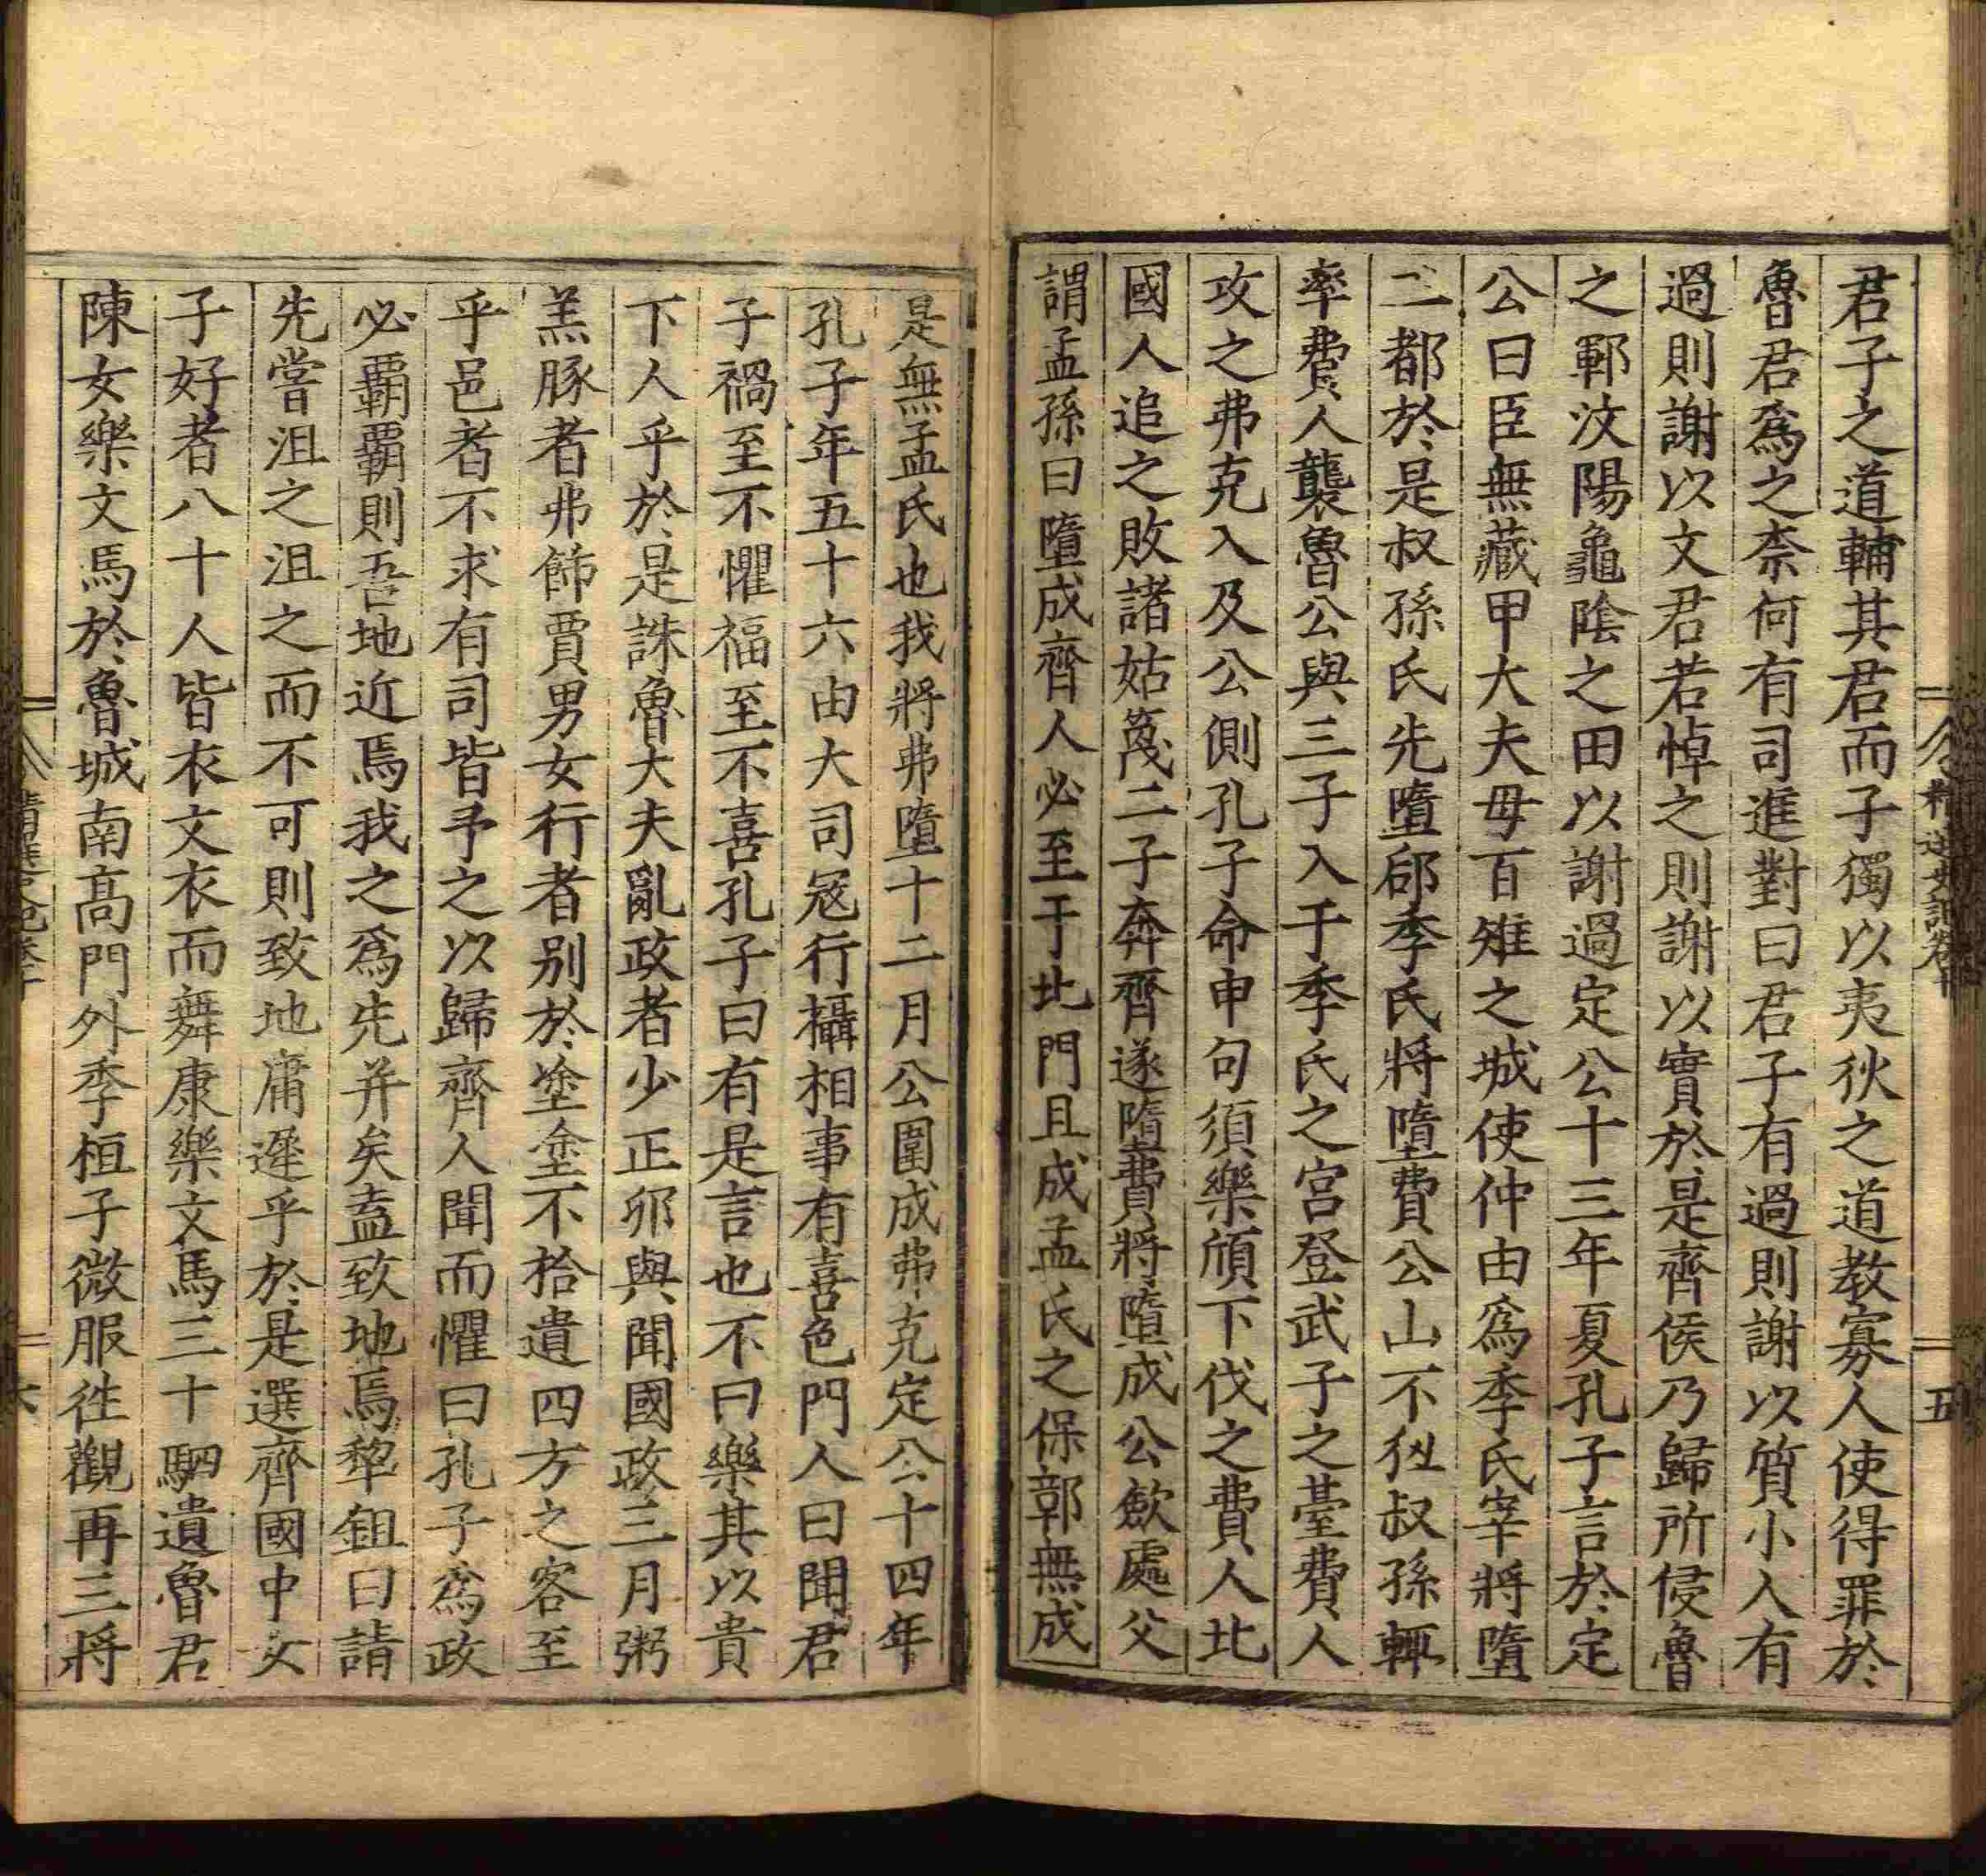 君子之道輔其君而子獨以夷狄之道教寡人使得罪於
魯君爲之柰何有司進對曰君子有過則謝以質小人有
過則謝以文君若悼之則謝以實於是齊侯乃歸所侵魯
之鄆汶陽龜陰之田以謝過定公十三年夏孔子言於定
公曰臣無藏甲大夫毋百雉之城使仲由爲季氏宰將墮
二都於是叔孫氏先墮郈季氏將墮費公山不狃叔孫輒
率費人襲魯公與三子入于季氏之宮登武子之臺費人
攻之弗克入及公側孔子命申句須樂頎下伐之費人北
國人追之敗諸姑篾二子奔齊遂墮費將墮成公歛處父
謂孟孫曰墮成齊人必至于北門且成孟氏之保鄣無成
五
是無孟氏也我將弗墮十二月公圍成弗克定公十四年
孔子年五十六由大司宼行攝相事有喜色門人曰聞君
子禍至不懼福至不喜孔子曰有是言也不曰樂其以貴
下人乎於是誅魯大夫亂政者少正卯與聞國政三月粥
羔豚者弗飾賈男女行者别於塗塗不拾遺四方之客至
乎邑者不求有司皆予之以歸齊人聞而懼曰孔子爲政
必霸霸則吾地近焉我之爲先并矣盍致地焉犂鉏曰請
先嘗沮之沮之而不可則致地庸遲乎於是選齊國中女
子好者八十人皆衣文衣而舞康樂文馬三十駟遺魯君
陳女樂文馬於魯城南高門外季桓子微服徃觀再三將
六